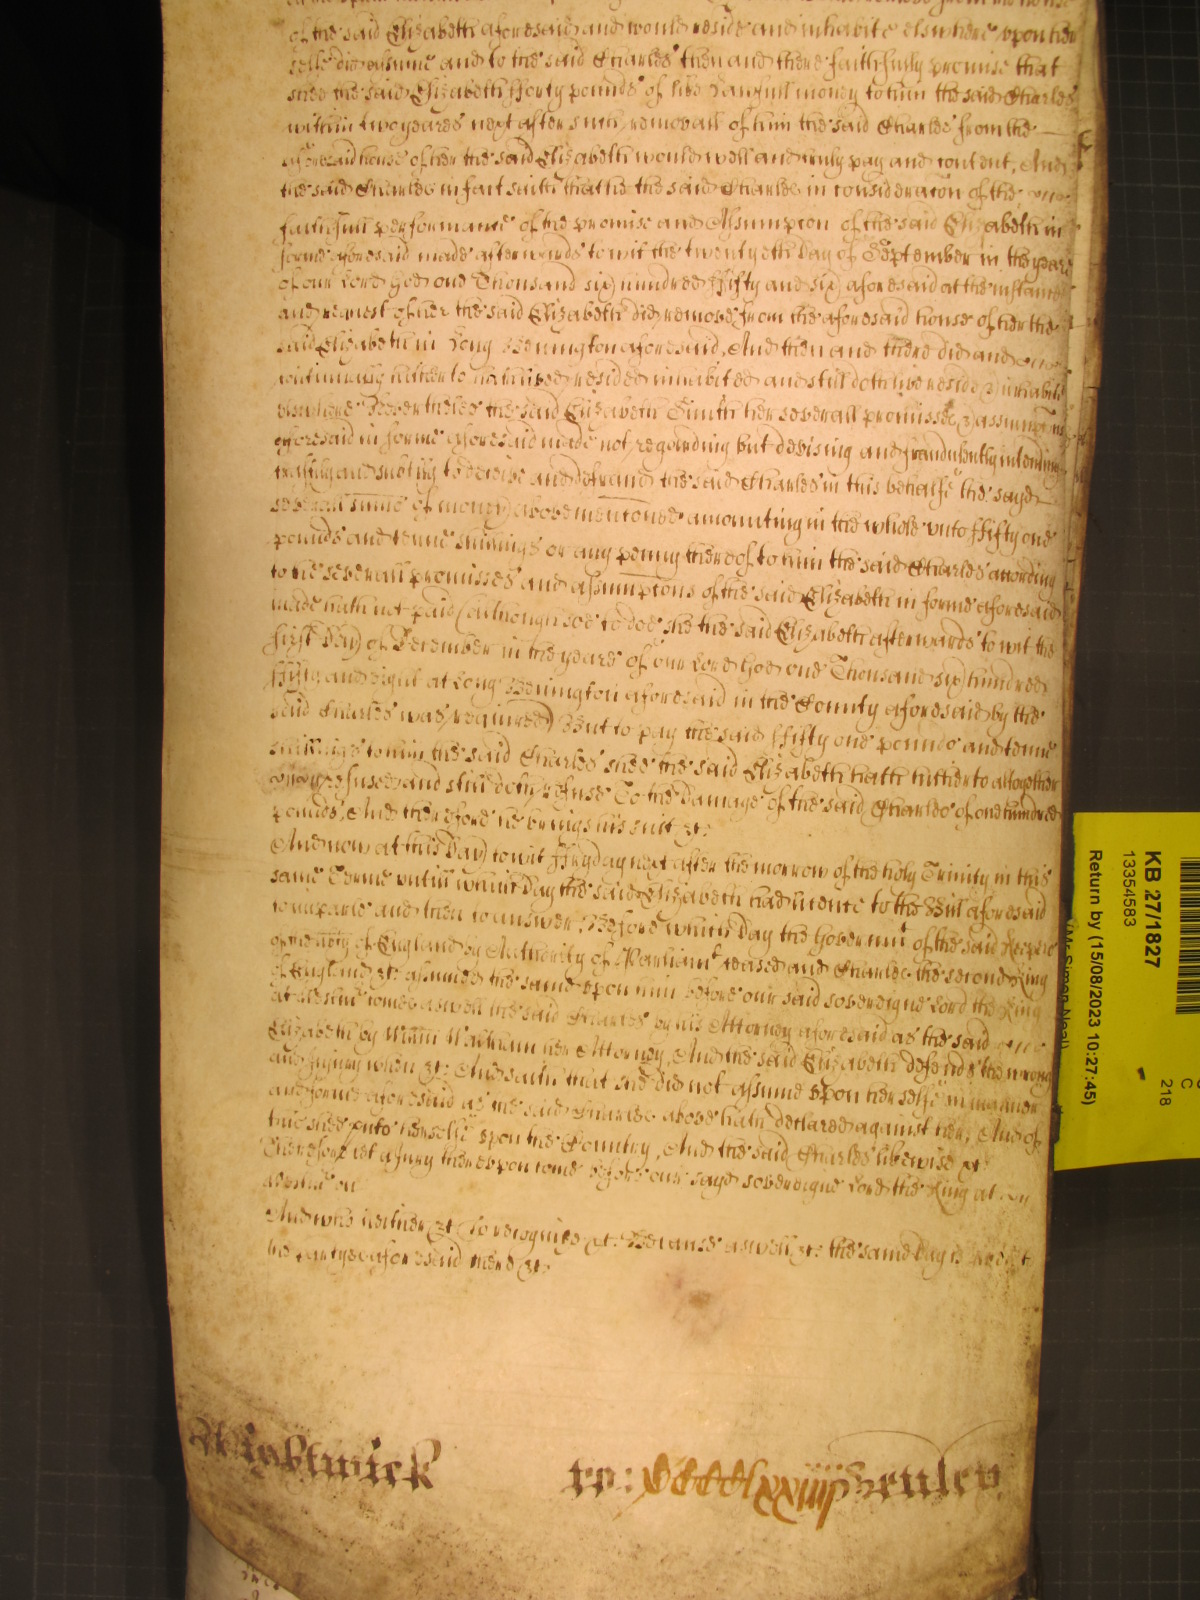 of the said Elizabeth aforesaid and would reside and inhabite elswhere upon her
selfe did assume and to the said Charles then and there faithfully promise that
shee the said Elizabeth fforty pounds of like Lawfull money to him the said Charles
within two yeares next after such removall of him the said Charles from the
aforesaid house of her the said Elizabeth would well and truly pay and content, And
the said Charles in fact saith that he the said Charles in consideracon of the
faithfull performance of the promise and Assumpcion of the said Elizabeth in
forme aforesaid made afterwards to wit the twentyeth Day of September in the yeare
of our Lord God one Thousand six hundred ffifty and six aforesaid at the instance
and request of her the said Elizabeth did remove from the aforesaid house of her the
said Elizabeth in Long Benington aforesaid, And then and there did and
continually hitherto hath resided inhabited and still doth live reside & inhabite
elswhere Neverthelesse the said Elizabeth Smith her severall promisses & assumpcons
aforesaid in forme aforesaid made not regarding but devising and fraudulently intending
craftily and subtily to deceive and defraud the said Charles in this behalfe the sayd
severall summes of money above mentoned amounting in the whole unto ffifty one
pounds and tenne shillings or any penny thereof to him the said Charles according
to the severall promisses and assumpcions of the said Elizabeth in forme aforesaid
made hath not paid (although soe to doe she the said Elizabeth afterwards to wit the
first Day of December in the yeare of our Lord God one Thousand six hundred
ffifty and eight at Long Benington aforesaid in the County aforesaid by the
said Charles was required) But to pay the said ffifty one pounds and tenne
shillings to him the said Charles shee the said Elizabeth hath hitherto altogether
refused and still doth refuse To the Damage of the said Charles of one hundred
pounds, And therefore he brings his suit &c:
And now at this Day to wit ffryday next after the morrow of the holy Trinity in this
same Terme untill which Day the said Elizabeth had licence to the Bill aforesaid
to imparle and then to answer, Before which Day the Governmt of the said Keepers
of the liberty of England by Authority of Parliamt ceased and Charles the second King
of England &c assumed the same upon him before our said sovereigne Lord the King
at Westmr comes aswell the said Charles by his Attorney aforesaid as the said
Elizabeth by Willm her Attorney, And the said Elizabeth defends the wrong
and Injury when &c: And saith that she did not assume upon her selfe in manner
and forme aforesaid as the said Charles above hath declared against her; And of
this shee puts herselfe upon the Country, And the said Charles likewise &c
Therefore let a Jury thereupon come before our sayd sovereigne Lord the King at
Westmr on
And who neither &c To recognize &c. Because aswell &c: the same Day is
the partyes aforesaid there &c:
Wightwick ro: CCCClxxiiij Henley
KB 27/1827
13354583
Return by (15/08/2023 10:27:45)
(Mr Simon Neal)
C
218